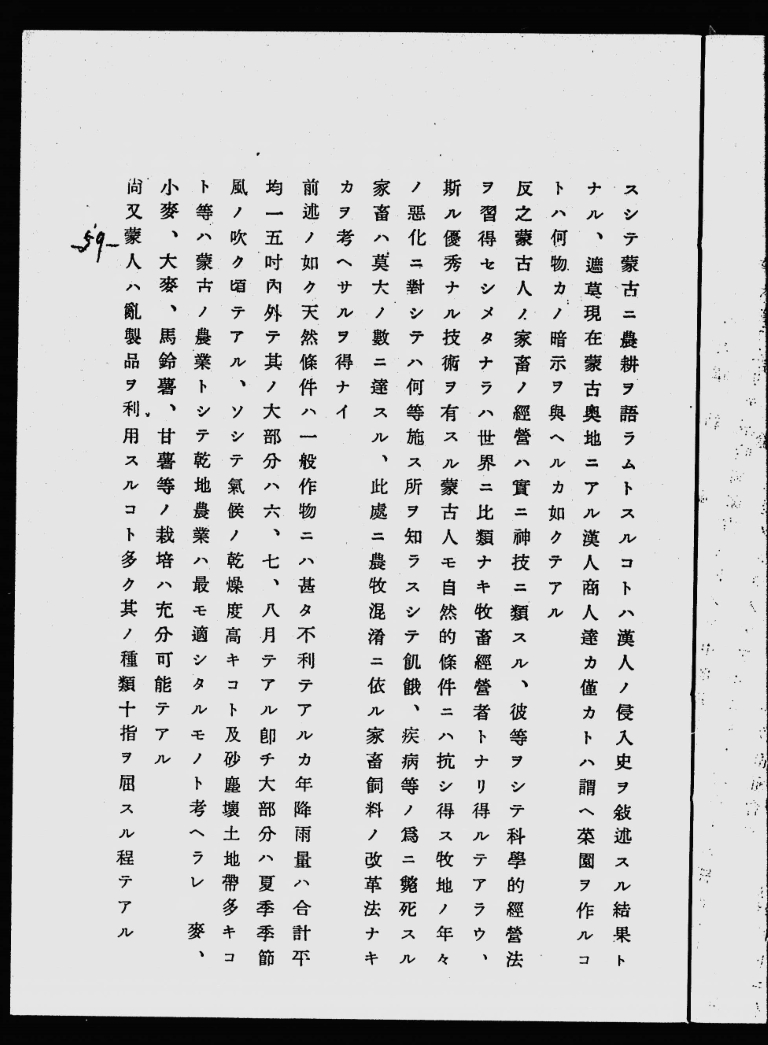 スシテ蒙古ニ農耕ヲ語ラムトスルコトハ漢人ノ侵入史ヲ敍述スル結果ト
ナル、遮莫現在蒙古奧地ニアル漢人商人達カ僅カトハ謂ヘ菜園ヲ作ルコ
トハ何物カノ暗示ヲ與ヘルカ如クテアル
反之蒙古人ノ家畜ノ經營ハ實ニ神技ニ類スル、彼等ヲシテ科學的經營法
ヲ習得セシメタナラハ世界ニ比類ナキ牧畜經營者トナリ得ルテアラウ、
斯ル優秀ナル技術ヲ有スル蒙古人モ自然的條件ニハ抗シ得ス牧地ノ年々
ノ惡化ニ對シテハ何等施ス所ヲ知ラスシテ飢餓、疾病等ノ爲ニ斃死スル
家畜ハ莫大ノ數ニ達スル、此處ニ農牧混淆ニ依ル家畜飼料ノ改革法ナキ
カヲ考ヘサルヲ得ナイ
前述ノ如ク天然條件ハ一般作物ニハ甚タ不利テアルカ年降雨量ハ合計平
均一五吋內外テ其ノ大部分ハ六、七、八月テアル卽チ大部分ハ夏季季節
風ノ吹ク頃テアル、ソシテ氣候ノ乾燥度高キコト及砂塵壤土地帶多キコ
ト等ハ蒙古ノ農業トシテ乾地農業ハ最モ適シタルモノト考ヘラレ　麥、
小麥、大麥、馬鈴薯、甘薯等ノ栽培ハ充分可能テアル
尙又蒙人ハ亂製品ヲ利用スルコト多ク其ノ種類十指ヲ屈スル程テアル
-59-